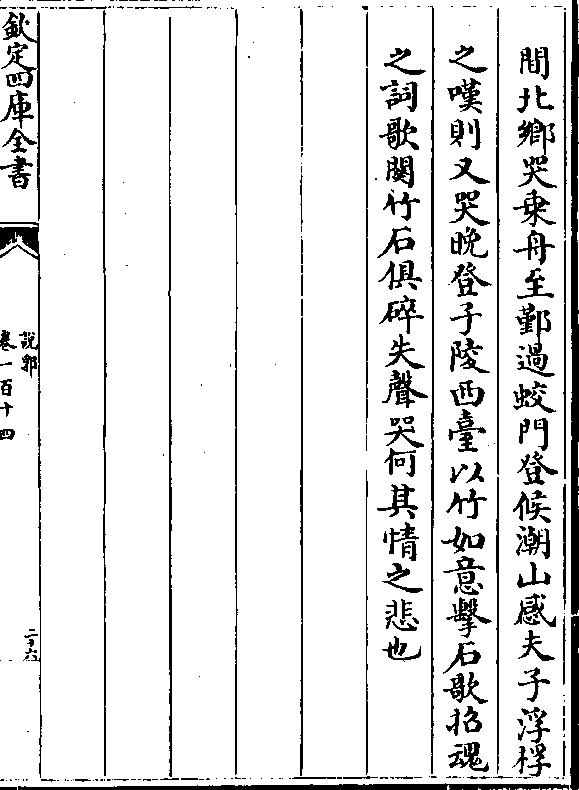 間北鄉哭乗舟至鄞過蛟門登候潮山感夫子浮桴
之嘆則又哭晚登子陵西臺以竹如意擊石歌招魂
之詞歌闋竹石俱碎失聲哭何其情之悲也
欽定四庫全書
說郛
卷一百十四
二十六